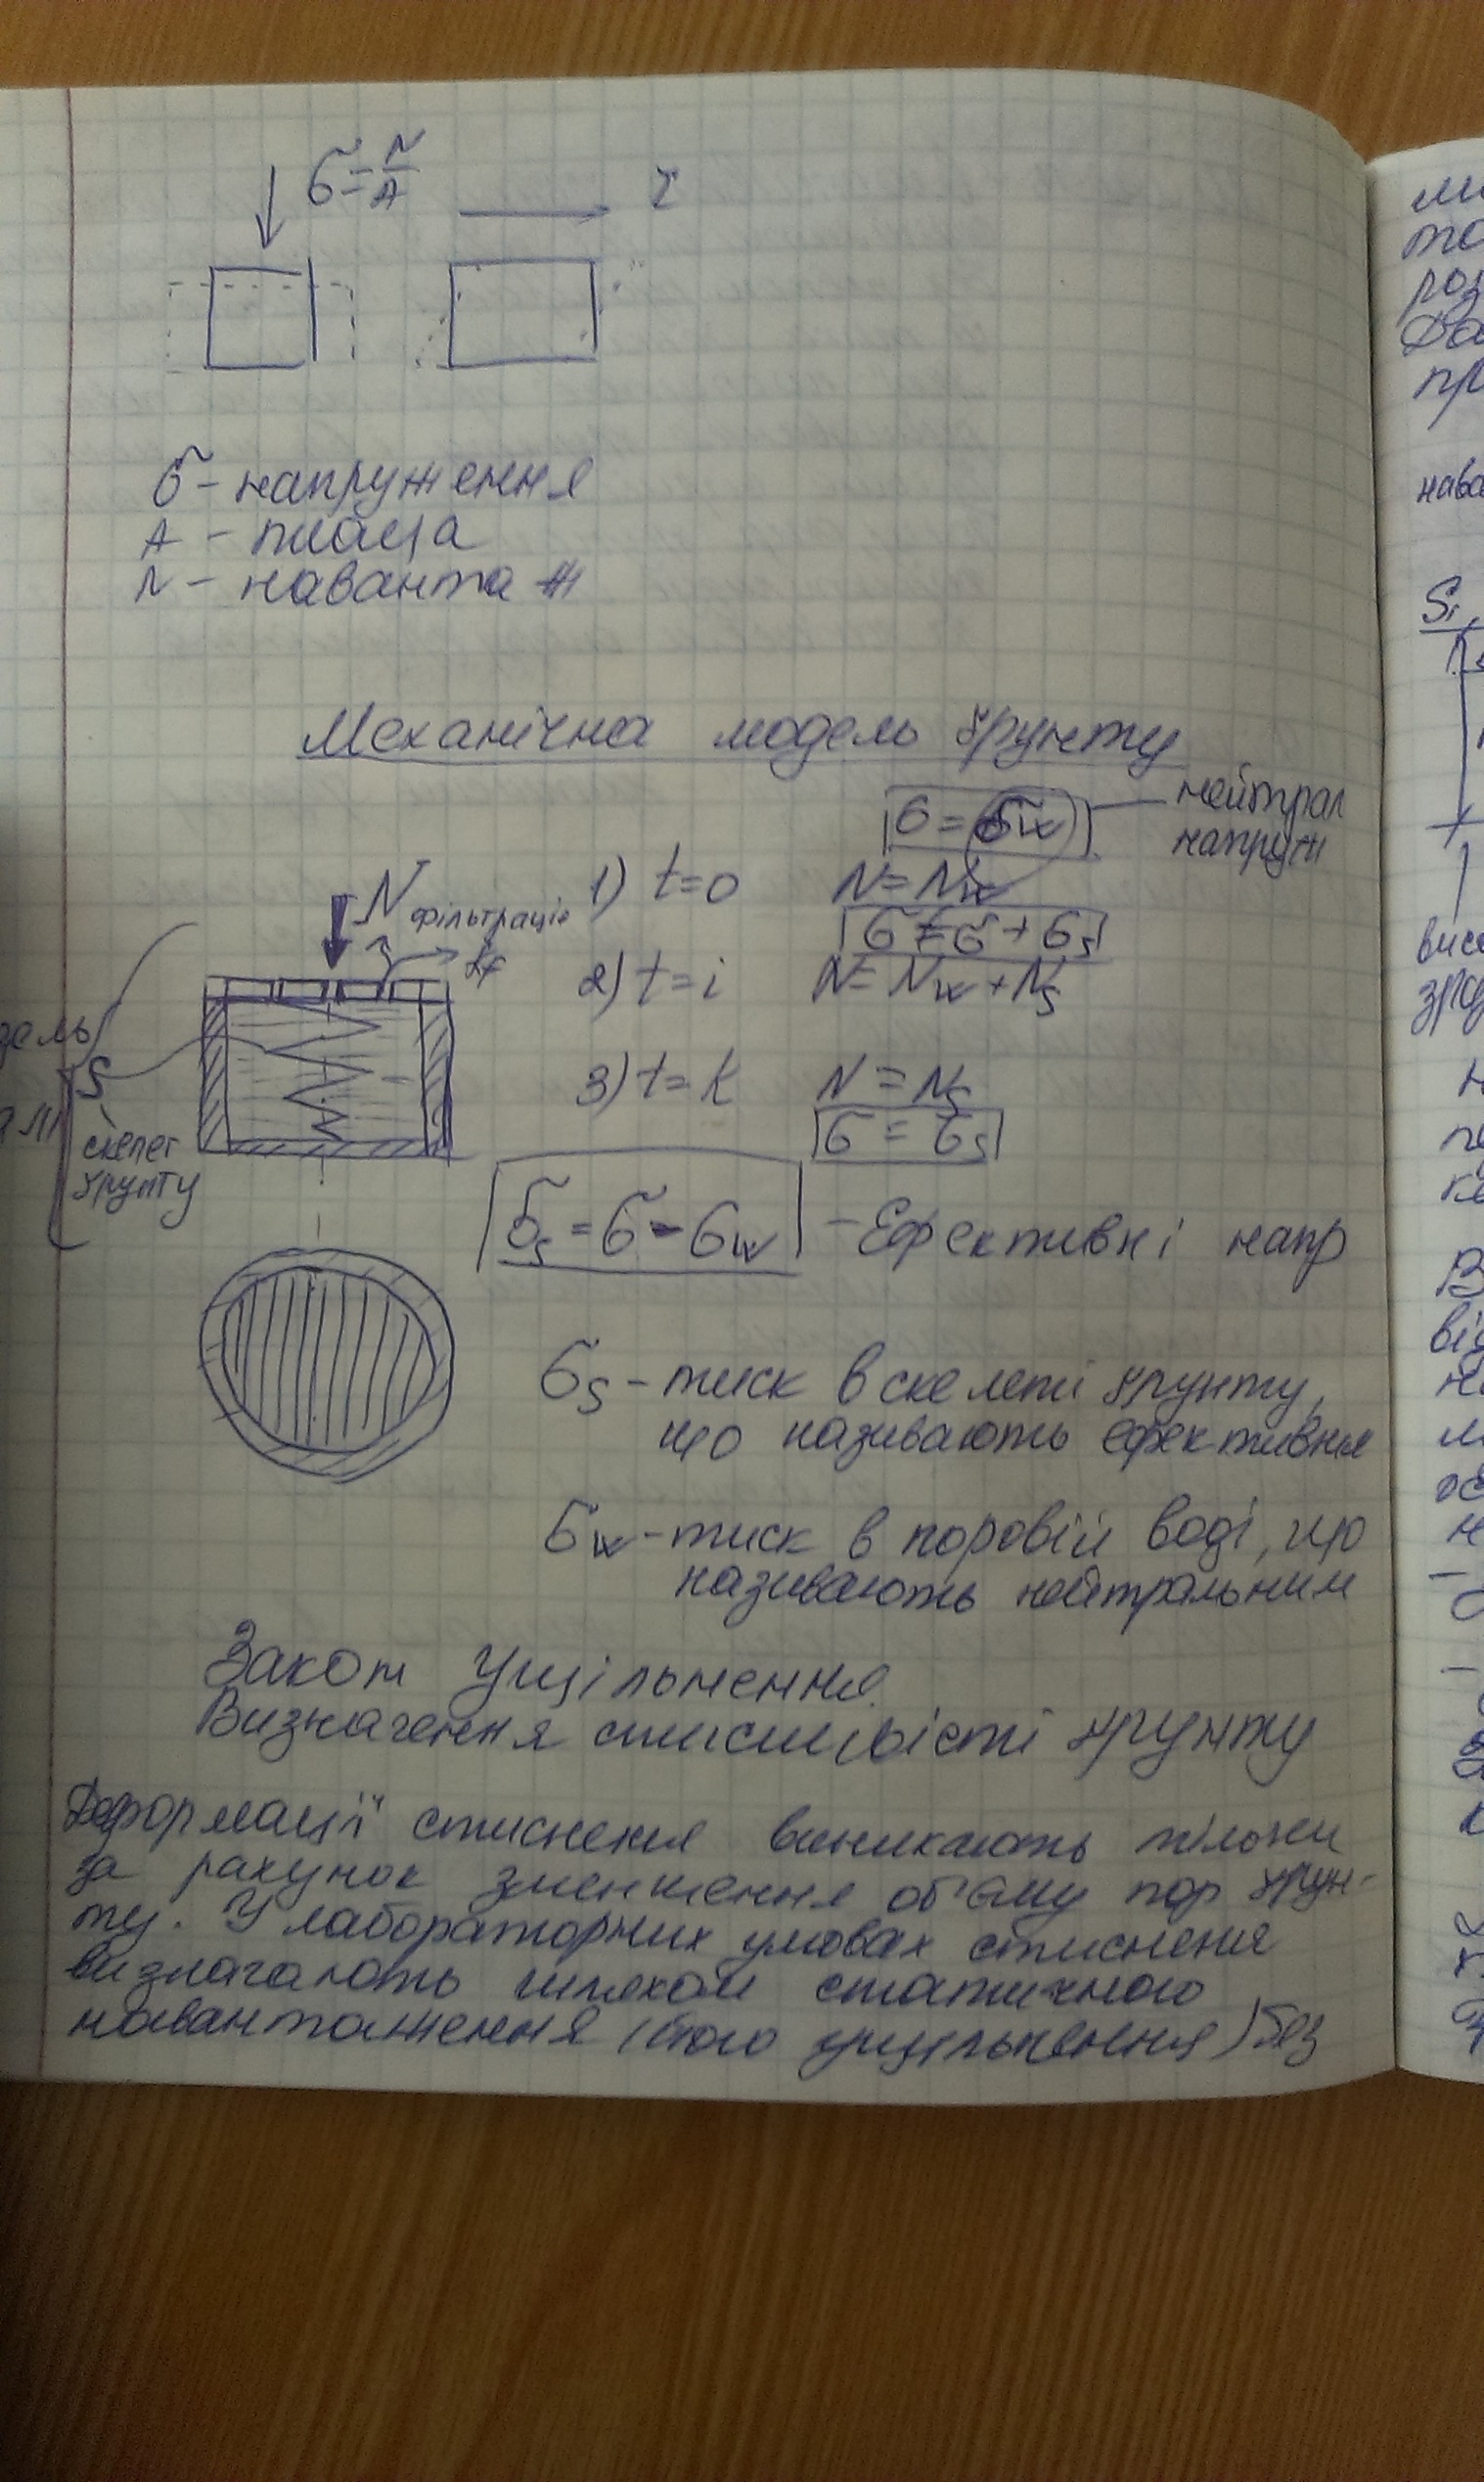 σ = N/A
τ
σ - напруження
A - площа
N - навантаж
Механічна модель ґрунту
σ = σw
нейтрал
напруж
1) t=0 N = Nw
σ = σ + σs
2) t=i N = Nw + Ns
3) t=k N = Ns
σ = σs
N
фільтрація
kf
S
скелет
ґрунту
σs = σ - σw - Ефективні напр
σs - тиск в скелеті ґрунту,
що називають ефективним
σw - тиск в поровій воді, що
називають нейтральним
Закон ущільнення.
Визначення стисливісті ґрунту
Деформації стиснення виникають тільки
за рахунок зменшення об'єму пор ґрун-
ту. У лабораторних умовах стиснення
визначають шляхом статичного
навантаження (його ущільнення) без